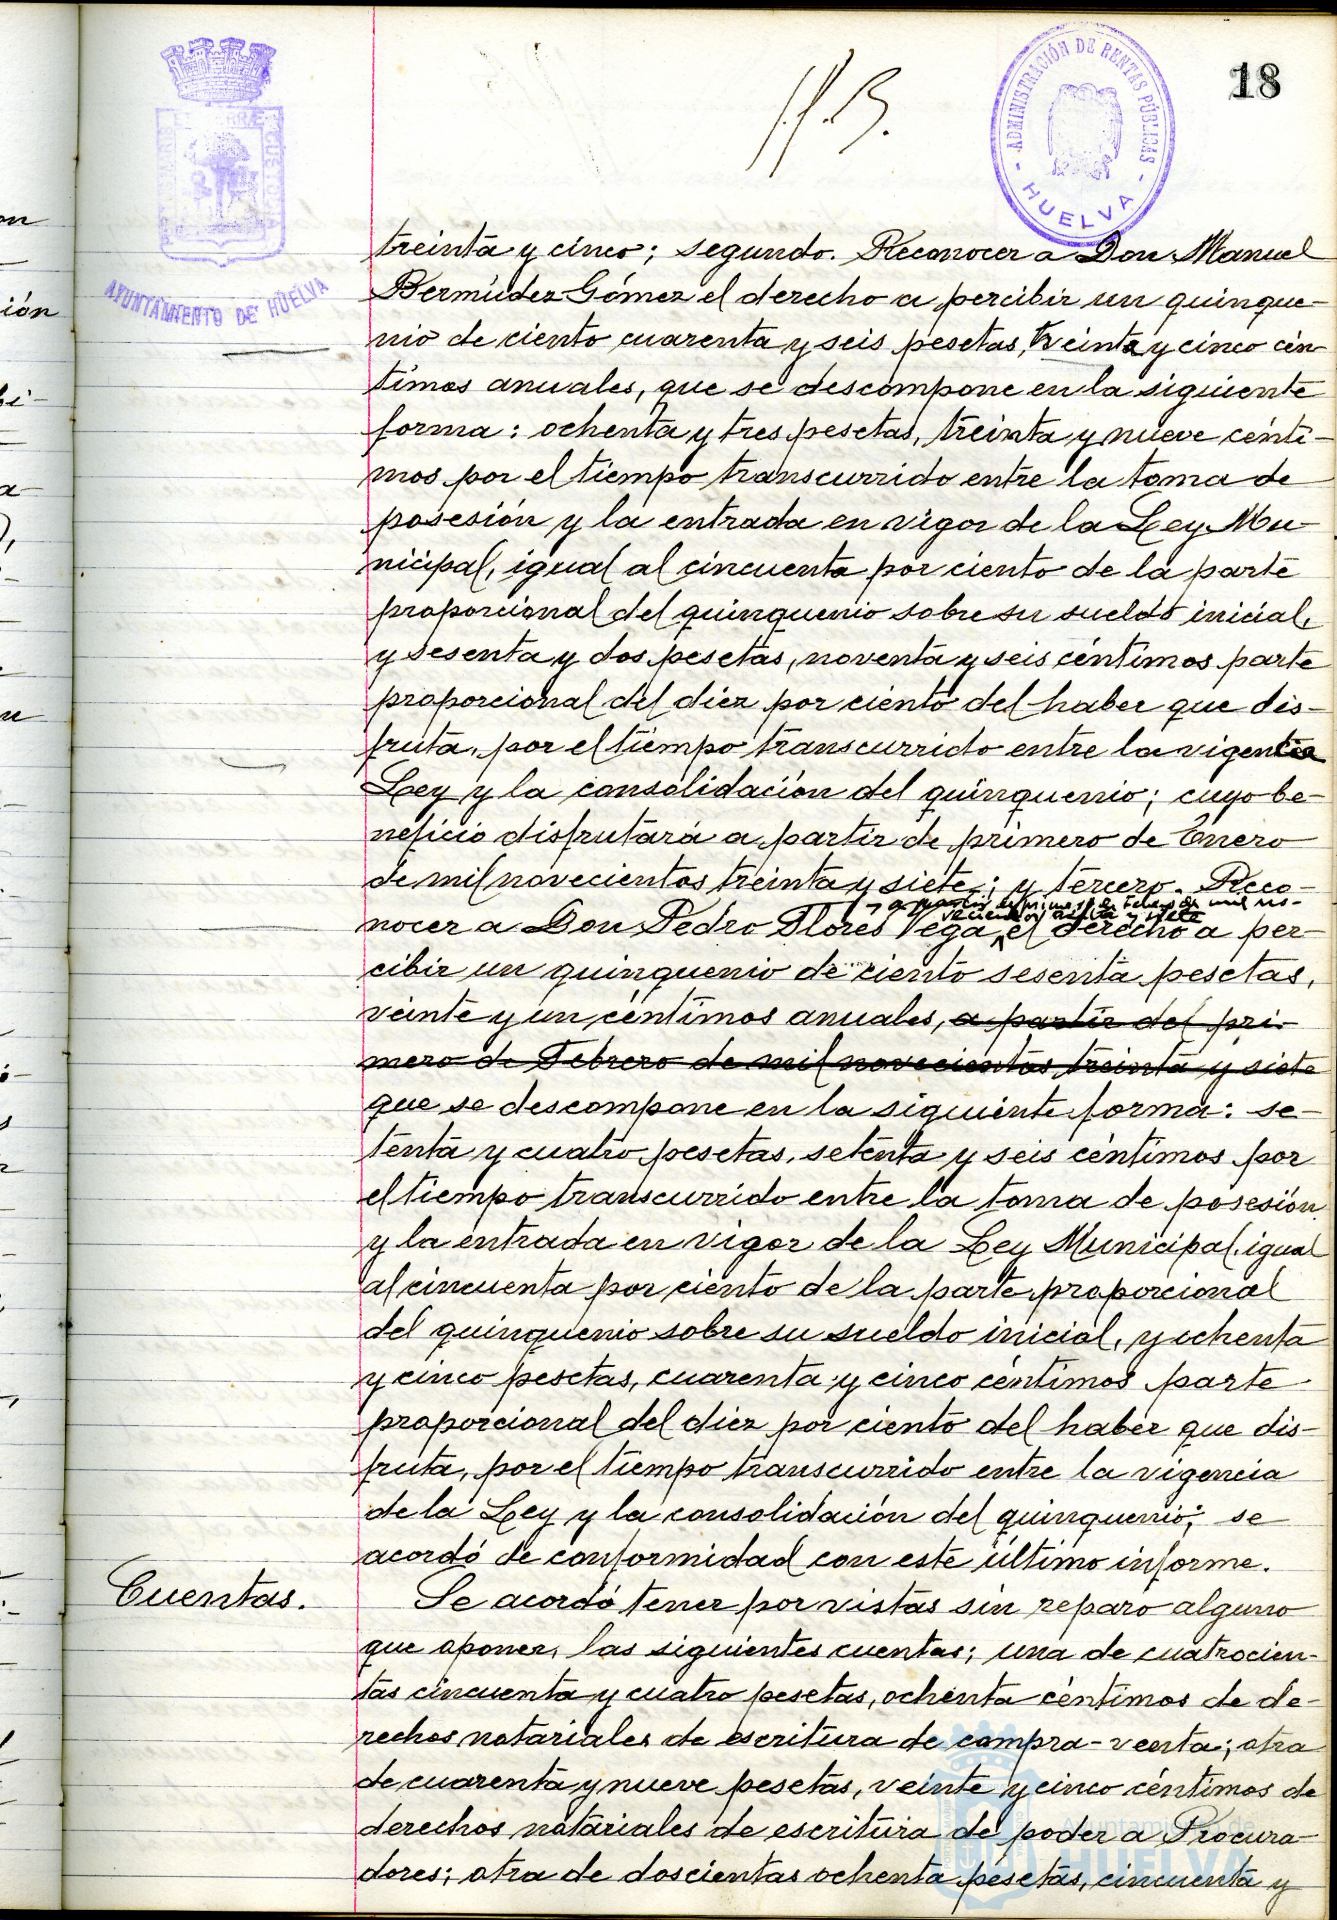 18
ADMINISTRACIÓN DE RENTAS PÚBLICAS
- HUELVA -
AYUNTAMIENTO DE HUELVA
treinta y cinco; segundo. Reconocer a Don Manuel
Bermúdez Gómez el derecho a percibir un quinque-
nio de ciento cuarenta y seis pesetas, treinta y cinco cén
timos anuales, que se descompone en la siguiente
forma: ochenta y tres pesetas, treinta y nueve cénti-
mos por el tiempo transcurrido entre la toma de
posesión y la entrada en vigor de la Ley Mu-
nicipal, igual al cincuenta por ciento de la parte
proporcional del quinquenio sobre su sueldo inicial,
y sesenta y dos pesetas, noventa y seis céntimos parte
proporcional del diez por ciento del haber que dis-
fruta, por el tiempo transcurrido entre la vigencia
Ley y la consolidación del quinquenio; cuyo be-
neficio disfrutará a partir de primero de Enero
de mil novecientos treinta y siete; y tercero. Reco-
a partir de primero de Febrero de mil no-
vecientos treinta y siete
nocer a Don Pedro Flores Vega, el derecho a per-
cibir un quinquenio de ciento sesenta pesetas,
veinte y un céntimos anuales, a partir del pri-
mero de Febrero de mil novecientos treinta y siete
que se descompone en la siguiente forma: se-
tenta y cuatro pesetas, setenta y seis céntimos por
el tiempo transcurrido entre la toma de posesión
y la entrada en vigor de la Ley Municipal, igual
al cincuenta por ciento de la parte proporcional
del quinquenio sobre su sueldo inicial, y ochenta
y cinco pesetas, cuarenta y cinco céntimos parte
proporcional del diez por ciento del haber que dis-
fruta, por el tiempo transcurrido entre la vigencia
de la Ley y la consolidación del quinquenio; se
acordó de conformidad con este último informe.
Cuentas.
Se acordó tener por vistas sin reparo alguno
que oponer, las siguientes cuentas; una de cuatrocien-
tas cincuenta y cuatro pesetas, ochenta céntimos de de-
rechos notariales de escritura de compra-venta; otra
de cuarenta y nueve pesetas, veinte y cinco céntimos de
derechos notariales de escritura de poder a Procura-
dores; otra de doscientas ochenta pesetas, cincuenta y
Ayuntamiento de
HUELVA